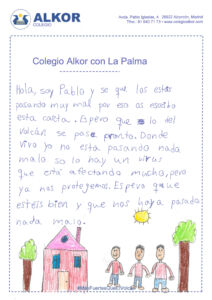 ALKOR
COLEGIO
Avda. Pablo Iglesias, 4 28922 Alcorcón, Madrid
Colegio Alkor con La Palma
Hola, soy Pablo y se que los estais
pasando muy mal por eso os escribo
esta carta. Espero que lo del
volcán se pase pronto. Donde
vivo yo no esta pasando nada
malo so lo hay un virus
que está afectando mucho, pero
ya nos protegemos. Espero que
esteis bien y que nos haya pasado
nada malo.